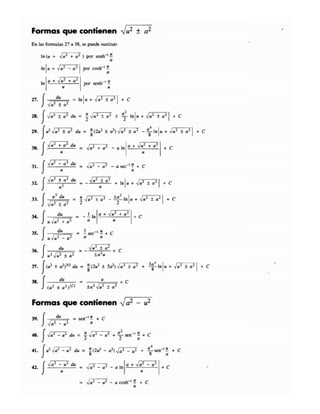 Formas que contienen √(u² ± a²)
En las fórmulas 27 a 38, se puede sustituir
ln (u + √(u² + a²)) por senh⁻¹ u/a
ln |u + √(u² − a²)| por cosh⁻¹ u/a
ln |(a + √(u² + a²))/u| por senh⁻¹ a/u
27. ∫ du/√(u² ± a²) = ln |u + √(u² ± a²)| + C
28. ∫ √(u² ± a²) du = u/2 √(u² ± a²) ± a²/2 ln |u + √(u² ± a²)| + C
29. ∫ u² √(u² ± a²) du = u/8 (2u² ± a²) √(u² ± a²) − a⁴/8 ln |u + √(u² ± a²)| + C
30. ∫ √(u² + a²) du/u = √(u² + a²) − a ln |(a + √(u² + a²))/u| + C
31. ∫ √(u² − a²) du/u = √(u² − a²) − a sec⁻¹ u/a + C
32. ∫ √(u² ± a²) du/u² = − √(u² ± a²)/u + ln |u + √(u² ± a²)| + C
33. ∫ u² du/√(u² ± a²) = u/2 √(u² ± a²) − ±a²/2 ln |u + √(u² ± a²)| + C
34. ∫ du/(u √(u² + a²)) = − 1/a ln |(a + √(u² + a²))/u| + C
35. ∫ du/(u √(u² − a²)) = 1/a sec⁻¹ u/a + C
36. ∫ du/(u² √(u² ± a²)) = − √(u² ± a²)/(±a²u) + C
37. ∫ (u² ± a²)^(3/2) du = u/8 (2u² ± 5a²) √(u² ± a²) + 3a⁴/8 ln |u + √(u² ± a²)| + C
38. ∫ du/(u² ± a²)^(3/2) = u/(±a² √(u² ± a²)) + C
Formas que contienen √(a² − u²)
39. ∫ du/√(a² − u²) = sen⁻¹ u/a + C
40. ∫ √(a² − u²) du = u/2 √(a² − u²) + a²/2 sen⁻¹ u/a + C
41. ∫ u² √(a² − u²) du = u/8 (2u² − a²) √(a² − u²) + a⁴/8 sen⁻¹ u/a + C
42. ∫ √(a² − u²) du/u = √(a² − u²) − a ln |(a + √(a² − u²))/u| + C
= √(a² − u²) − a cosh⁻¹ a/u + C